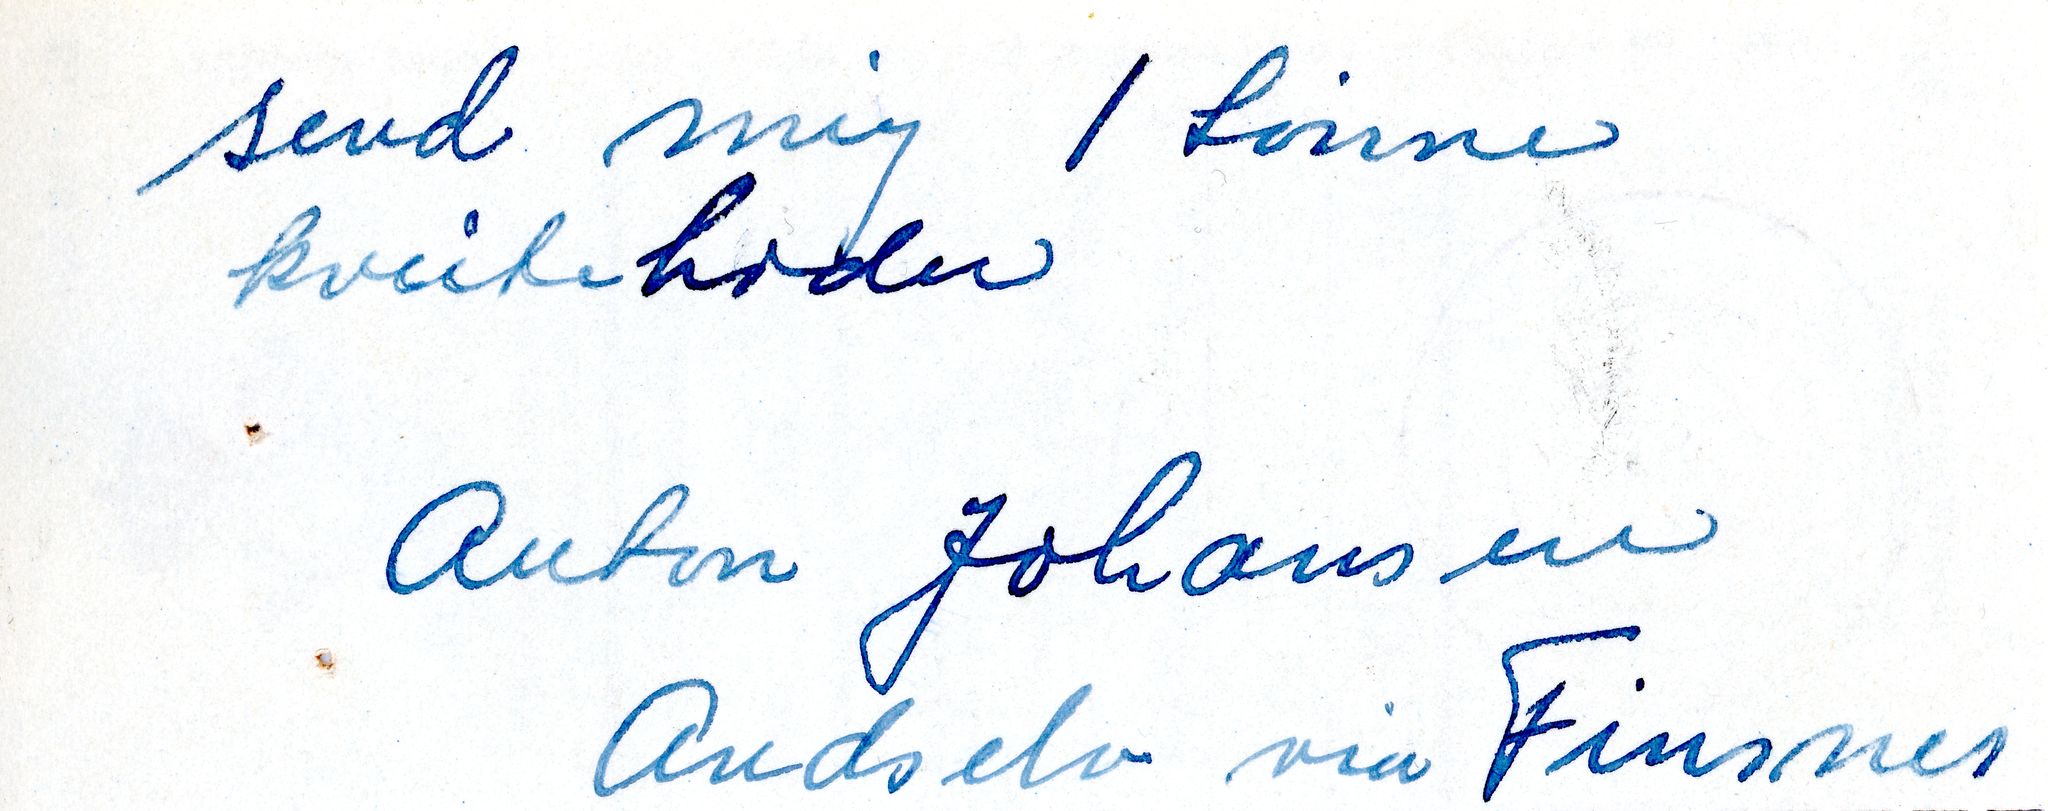 send mig 1 tönne
kveitehoder
Anton Johansen
Andselv via Finsnes